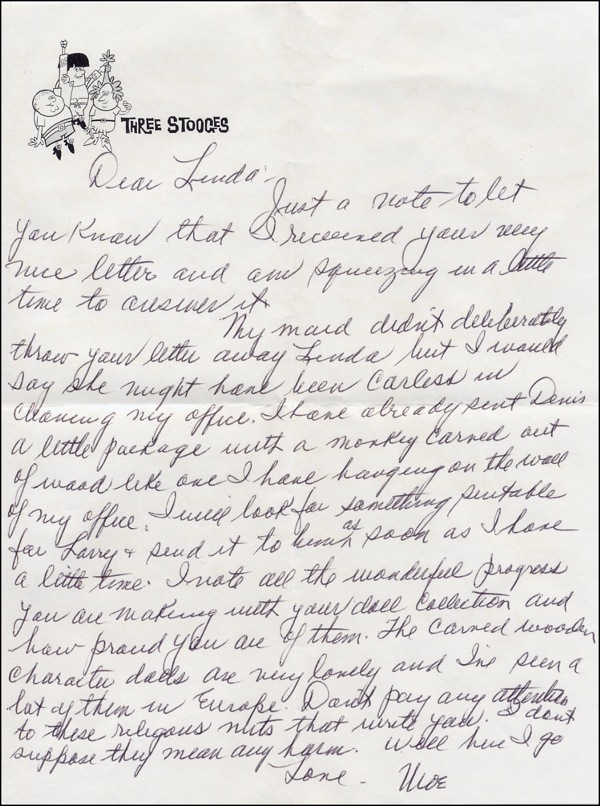 THREE STOOGES
Dear Linda -
Just a note to let
you know that I received your very
nice letter and am squeezing in a little
time to answer it
My maid didn't deliberately
throw your letter away Linda but I would
say she might have been carless in
cleaning my office. I have already sent Denis
a little package with a monkey carved out
of wood like one I have hanging on the wall
of my office. I will look for something suitable
for Larry & send it to him as soon as I have
a little time. I note all the wonderful progress
you are making with your doll collection and
how proud you are of them. The carved wooden
character dolls are very lovely and I've seen a
lot of them in Europe. Don't pay any attention
to these religous nuts that write you. I don't
suppose they mean any harm. Well here I go
Love - Moe